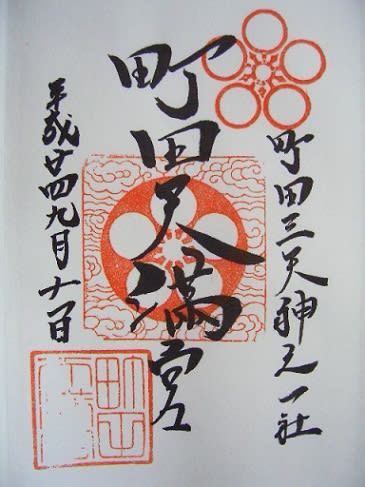 町田三天神之一社
町田天満宮
平成廿四九月十一日